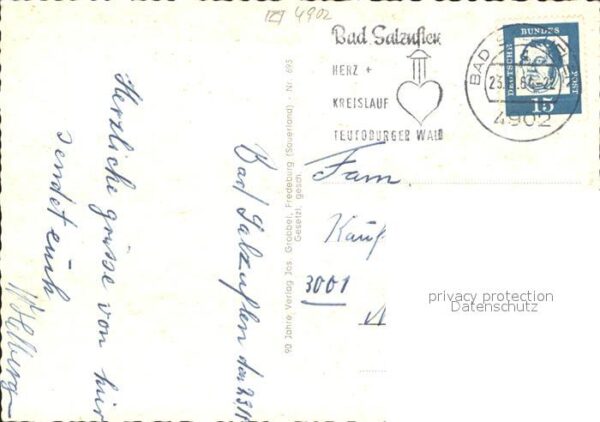 4902
Bad Salzuflen
HERZ +
KREISLAUF
TEUTOBURGER WALD
BAD
23. .64-22
4902
DEUTSCHE BUNDESPOST
15
Bad Salzuflen den 23.
Herzliche grüsse von hier
sendet euch
90 Jahre Verlag Jos. Grobbel, Fredeburg (Sauerland) - Nr. 695
Gesetzl. gesch.
Fam
Kauf
3001
privacy protection
Datenschutz